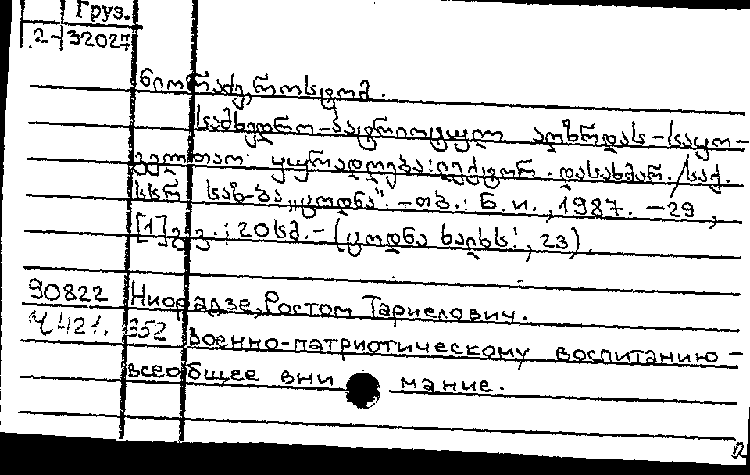 Груз.
2-32027
ნიორაძე, როსტომ.
სამხედრო-პატრიოტულ აღზრდას - საყო-
ველთაო ყურადღება: ლექტორ. დასახმარ. / საქ.
სსრ საზ-ბა „ცოდნა“ - თბ.: Б. и., 1987. - 29,
[1] გვ.; 20 სმ. - (ცოდნა ხალხს!, 23).
90822 Ниорадзе, Ростом Тариелович.
352 Военно-патриотическому воспитанию -
всеобщее внимание.